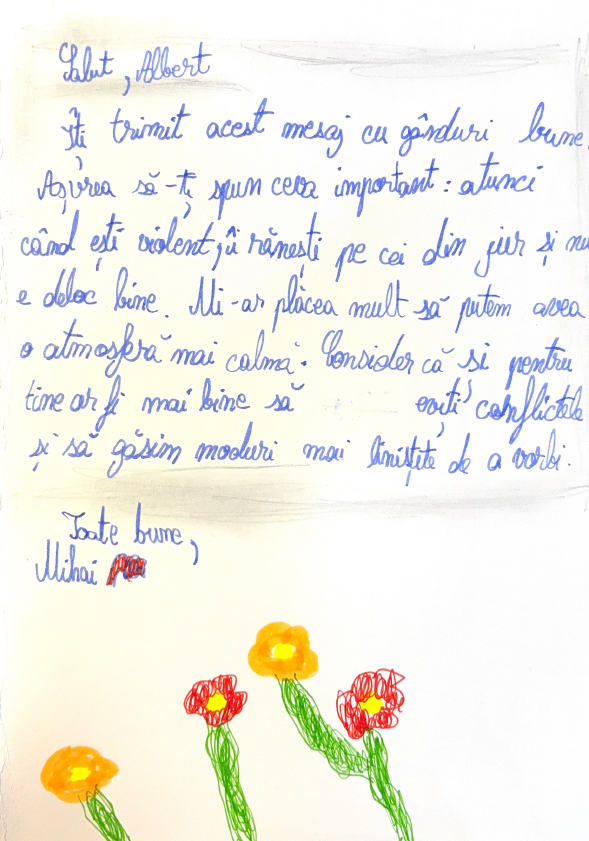 Salut, Albert
Îți trimit acest mesaj cu gânduri bune.
Aș vrea să-ți spun ceva important: atunci
când ești violent, îi rănești pe cei din jur și nu
e deloc bine. Mi-ar plăcea mult să putem avea
o atmosferă mai calmă. Consider că și pentru
tine ar fi mai bine să eviți conflictele
și să găsim moduri mai liniștite de a vorbi.
Toate bune,
Mihai